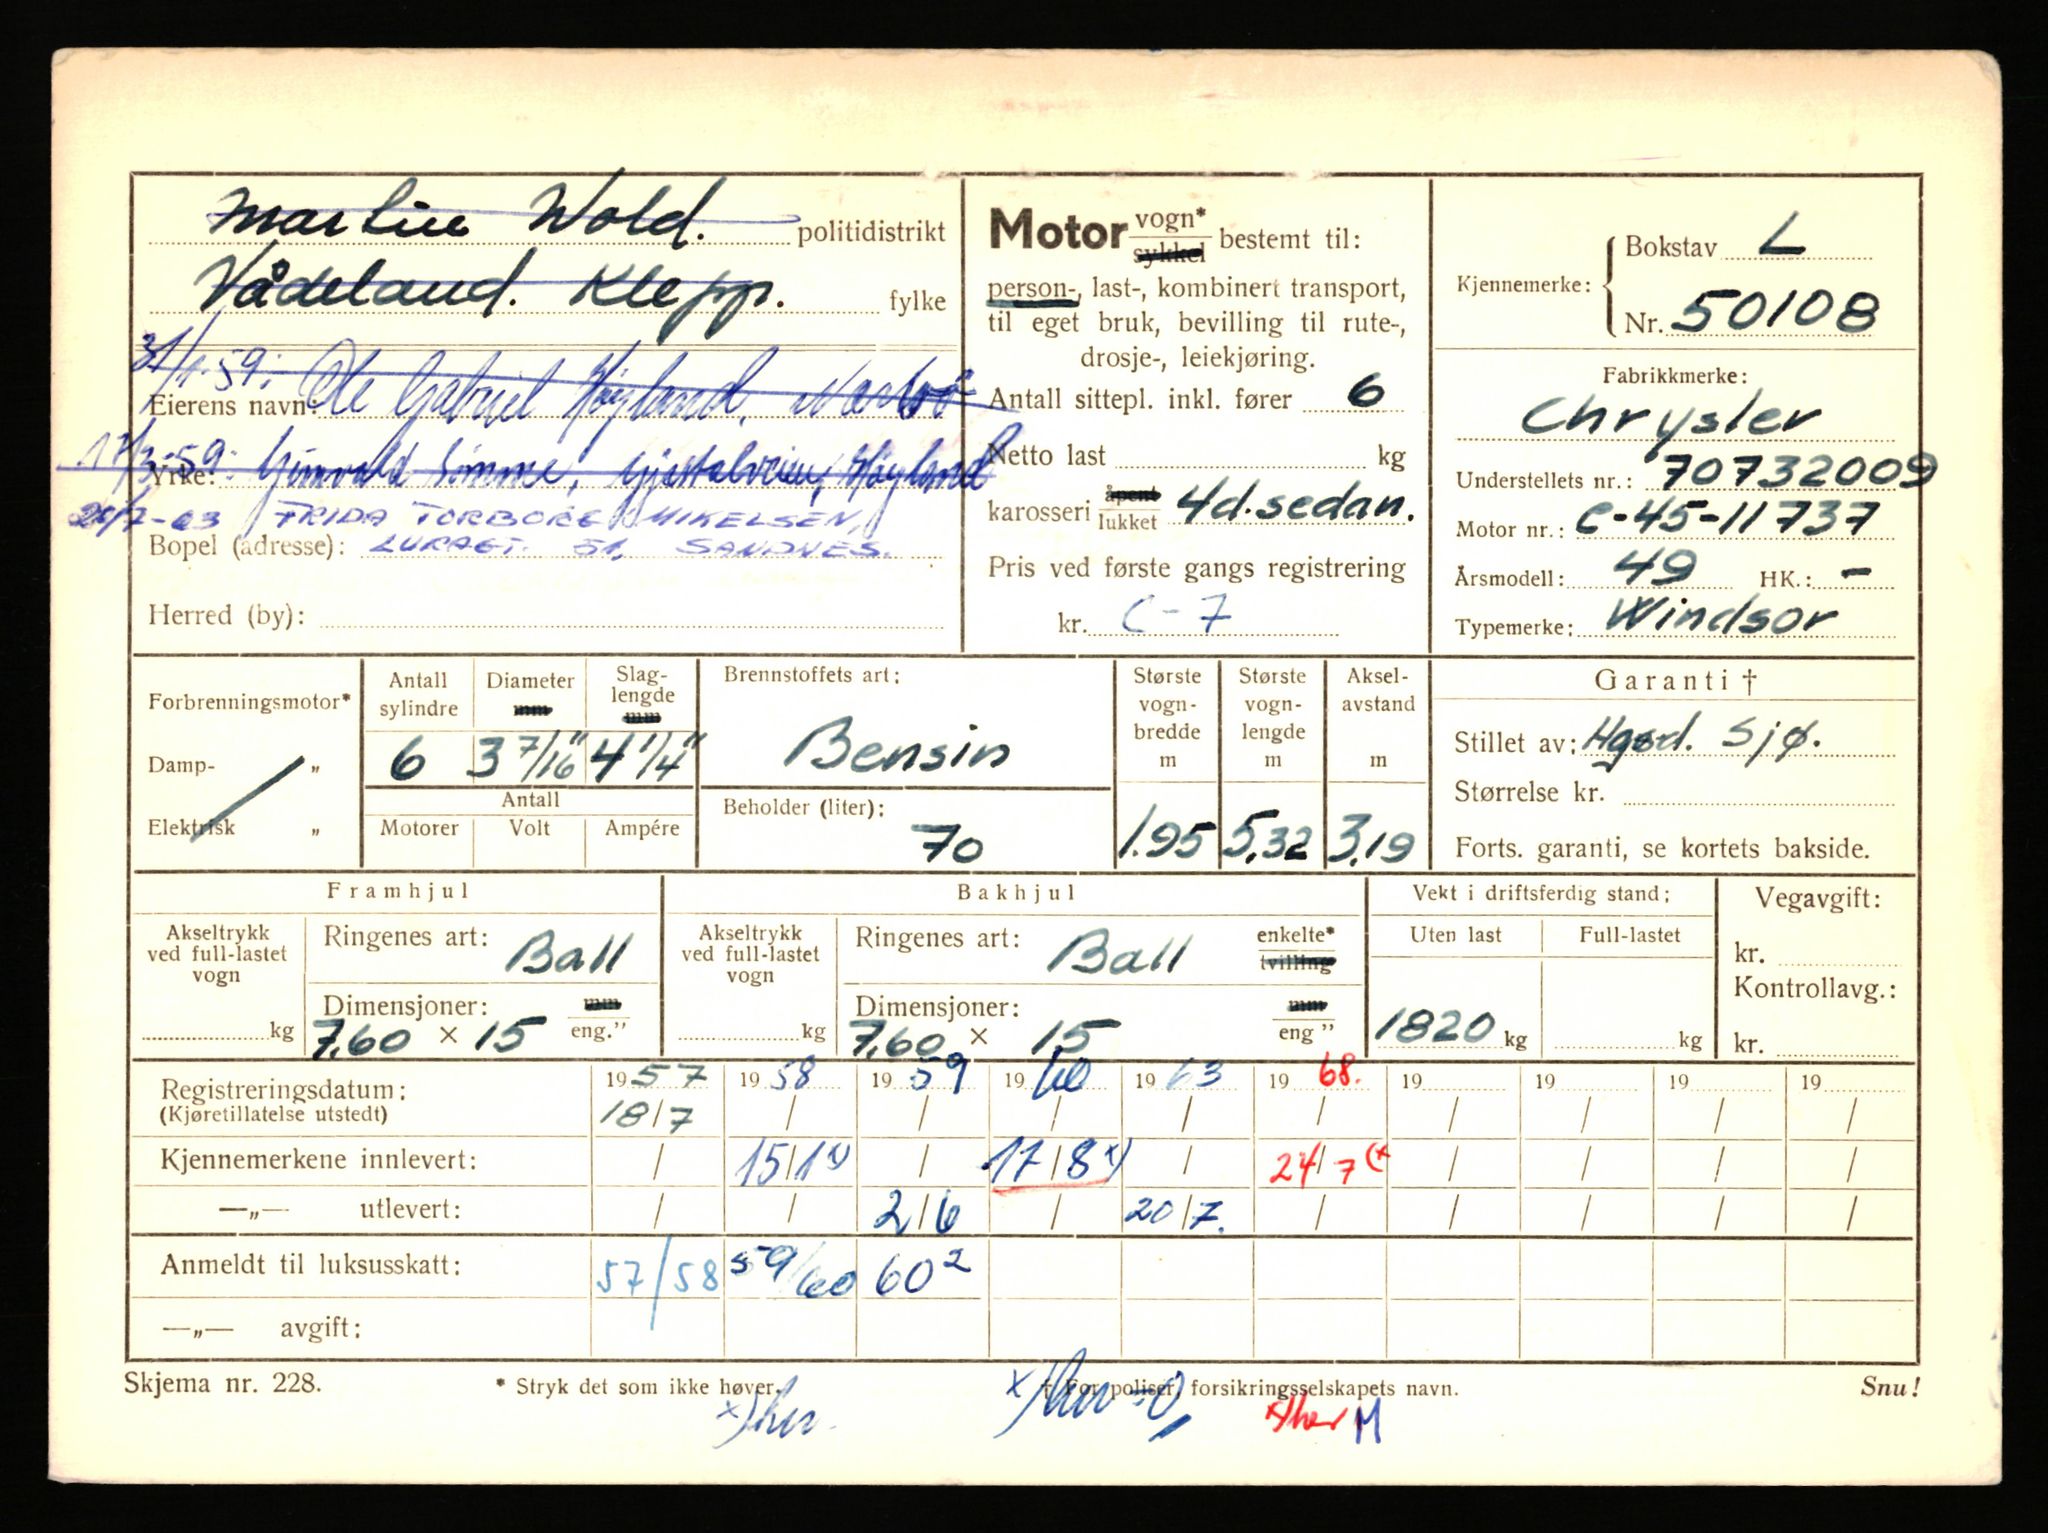 Martin Wold. politidistrikt
Vådeland. Klepp. fylke
31/1-59: Ole Gabriel Høyland, Nærbø
Eierens navn:
17/3-59: Gunvald Sømme, Gjestalveien, Høyland
Yrke:
26/7-63 FRIDA TORBORG MIKELSEN,
Bopel (adresse): LURAGT. 51, SANDNES.
Herred (by):
Motor vogn* sykkel bestemt til:
person-, last-, kombinert transport,
til eget bruk, bevilling til rute-,
drosje-, leiekjøring.
Antall sittepl. inkl. fører 6
Netto last kg
karosseri åpent lukket 4d. sedan.
Pris ved første gangs registrering
kr. C-7
Kjennemerke: Bokstav L
Nr. 50108
Fabrikkmerke:
Chrysler
Understellets nr.: 70732009
Motor nr.: C-45-11737
Årsmodell: 49 HK.: -
Typemerke: Windsor
Forbrenningsmotor*
Damp- „
Elektrisk „
Antall sylindre 6
Diameter mm 3 7/16"
Slaglengde mm 4 1/4"
Antall
Motorer Volt Ampére
Brennstoffets art:
Bensin
Beholder (liter):
70
Største vognbredde m 1.95
Største vognlengde m 5,32
Akselavstand m 3,19
Garanti †
Stillet av: Hgsd. Sjø.
Størrelse kr.
Forts. garanti, se kortets bakside.
Framhjul
Akseltrykk ved full-lastet vogn kg
Ringenes art: Ball
Dimensjoner: mm
7,60 × 15 eng."
Bakhjul
Akseltrykk ved full-lastet vogn kg
Ringenes art: Ball enkelte* tvilling
Dimensjoner: mm
7,60 × 15 eng "
Vekt i driftsferdig stand:
Uten last Full-lastet
1820 kg kg
Vegavgift:
kr.
Kontrollavg.:
kr.
Registreringsdatum: 1957 1958 1959 1960 1963 1968. 19 19 19 19
(Kjøretillatelse utstedt) 18/7 / / / / / / / / /
Kjennemerkene innlevert: / 15/1 x) / 17/8 x) / 24/7 (x / / / /
—„— utlevert: / / 2/6 / 20/7. / / / / /
Anmeldt til luksusskatt: 57/58 59/60 60²
—„— avgift:
Skjema nr. 228. * Stryk det som ikke høver. † For poliser, forsikringsselskapets navn. Snu!
x) her x) her x) her M